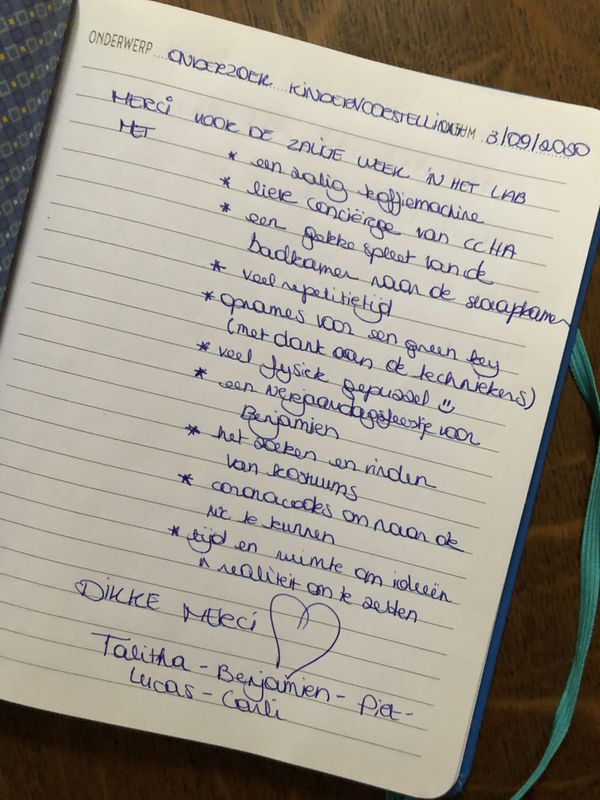 ONDERWERP ONDERZOEK KINDERVOORSTELLING DATUM 3/09/2020
MERCI VOOR DE ZALIGE WEEK IN HET LAB
MET
* een zalig koffiemachine
* lieve conciërge van CCHA
* een gekke spleet van de
badkamer naar de slaapkamer
* veel repetitietijd
* opnames voor een green key
(met dank aan de techniekers)
* veel fysiek gepuzzel ☺
* een verjaardagsfeestje voor
Benjamien
* het zoeken en vinden
van kostuums
* coronacodes om naar de
wc te kunnen
* tijd en ruimte om ideeën
in realiteit om te zetten
DIKKE MERCI ♡
Talitha - Benjamien - Piet -
Lucas - Carli